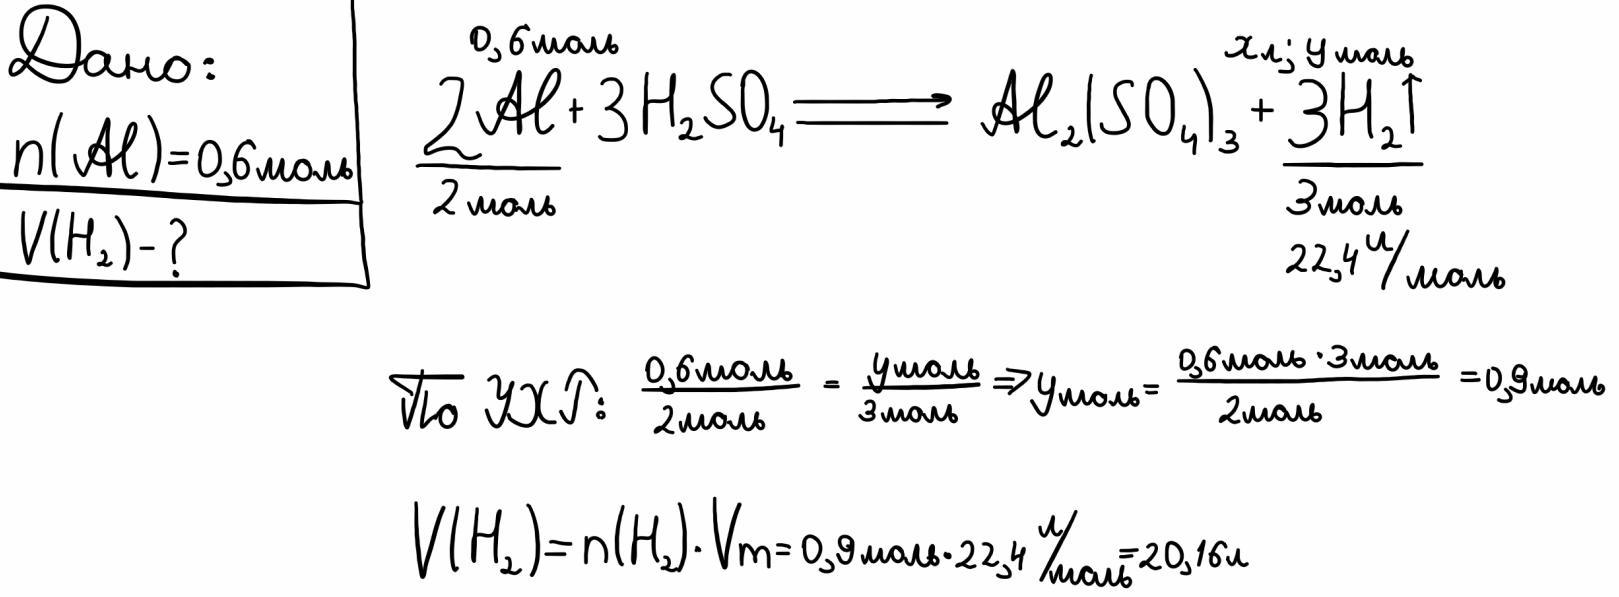 Дано:
n(Al)=0,6моль
V(H₂)-?
0,6моль
xл; y моль
2Al+3H₂SO₄⟶Al₂(SO₄)₃+3H₂↑
2моль
3моль
22,4л/моль
По УХР: 0,6моль/2моль = yмоль/3моль ⇒ yмоль= 0,6моль·3моль/2моль =0,9моль
V(H₂)=n(H₂)·Vm=0,9моль·22,4 л/моль=20,16л